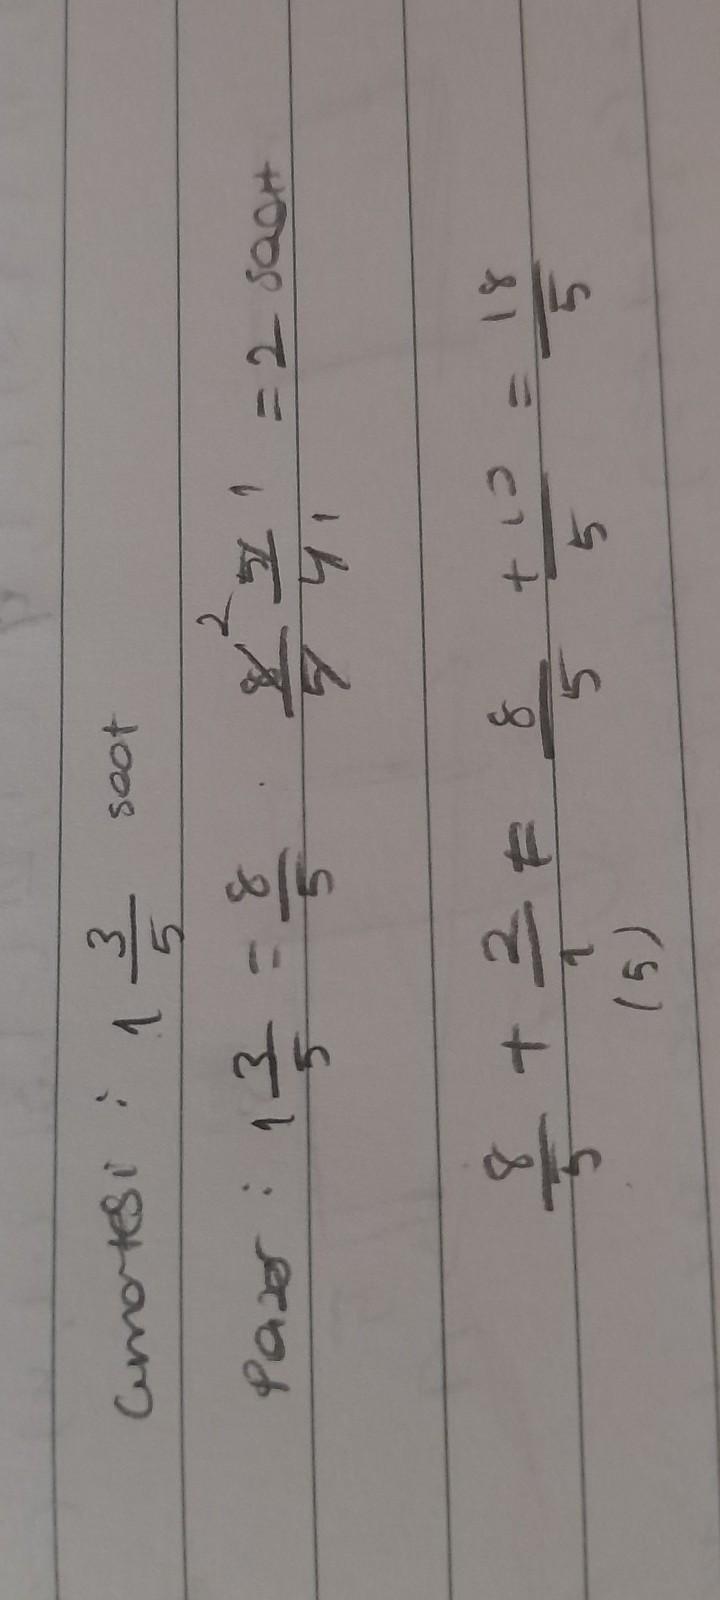 Cumartesi : 1 3/5 saat
Pazar : 1 3/5 = 8/5 . 8/5 2 5/4 1 1 = 2 saat
8/5 + 2/1 = 8/5 + 10/5 = 18/5
(5)